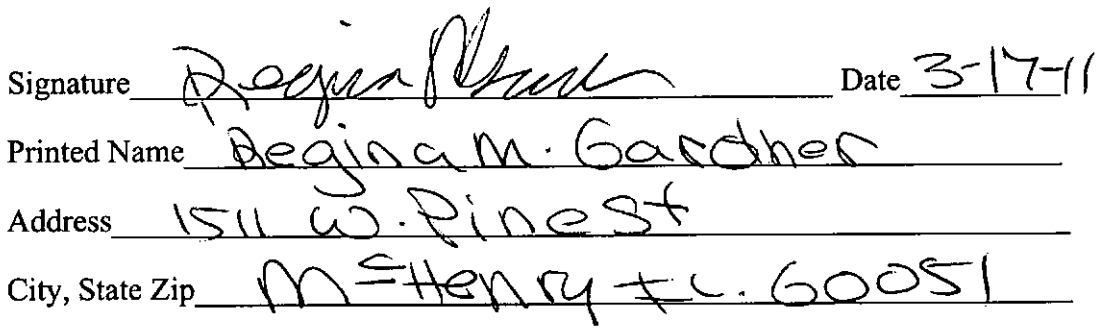 Signature Regina Date 3-17-11
Printed Name Regina M. Gardner
Address 1511 W. Pine St
City, State Zip McHenry IL. 60051